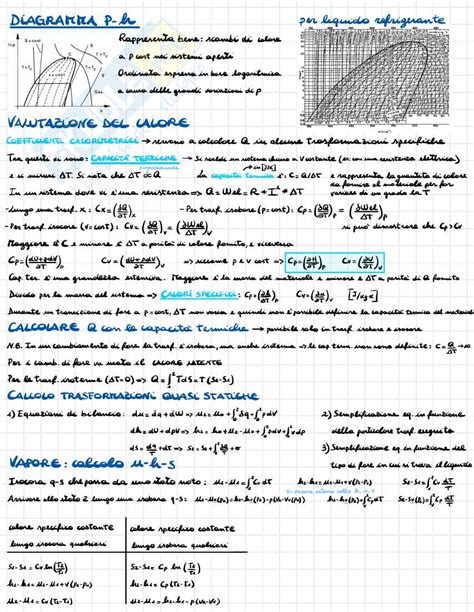 DIAGRAMMA P-h
per liquido refrigerante
Rappresenta bene: scambi di calore
a p cost nei sistemi aperti
Ordinata espressa in base logaritmica
a causa delle grandi variazioni di p
VALUTAZIONE DEL CALORE
COEFFICIENTI CALORIMETRICI → servono a calcolare Q in alcune trasformazioni specifiche
Tra questi ci sono: CAPACITÀ TERMICHE → Si scalda un sistema chiuso a V costante (es: con una resistenza elettrica)
e si misura ΔT. Si nota che ΔT ∝ Q
La capacità termica è: C = Q/ΔT e rappresenta la quantità di calore
da fornire al materiale per far
variare di un grado la T
In un sistema dove vi è una resistenza => Q = Wel = R * I² * Δt
- Lungo una trasf. x: Cx = (δQ/∂T)x
- Per trasf. isobare (p=cost): Cp = (δQ/∂T)p = (δWel/ΔT)p
- Per trasf. isocore (V=cost): Cv = (δQ/∂T)v = (δWel/ΔT)v
si può dimostrare che Cp>Cv
Maggiore è C e minore è ΔT a parità di calore fornito, e viceversa
Cp = (dU+pdV/∂T)p Cv = (dU+pdV/∂T)v => siccome p e V cost => Cp = (∂H/∂T)p Cv = (∂U/∂T)v
Cap ter. è una grandezza estensiva. Maggiore è la massa del materiale e minore è ΔT a parità di Q fornito
Divido per la massa del sistema → CALORI SPECIFICI: cp = (∂h/∂T)p cv = (∂u/∂T)v [J/kg K]
Durante un transizione di fase a p=cost, ΔT non varia e quindi non è possibile definire la capacità termica del materiale
CALCOLARE Q con la capacità termiche → possibile solo in trasf. isobare e isocore
N.B. In un cambiamento di fase la trasf. è isobara, ma anche isoterma → le cap term. non sono definite: C = Q/ΔT →∞
Per i camb. di fase va usato il CALORE LATENTE
Per le trasf. isoterme (ΔT=0) => Q = ∫₁² TdS = T(S₂-S₁)
CALCOLO TRASFORMAZIONI QUASI STATICHE
1) Equazioni di bilancio:
2) Semplificazione eq. in funzione
della particolare trasf. eseguita
3) Semplificazione eq. in funzione del
tipo di fase in cui si trova il liquido
VAPORE: calcolo u-h-s
Isocora q-s che parte da uno stato noto: u₂-u₁ = ∫₁² Cv dT h₂-h₁ = u₂-u₁+v(p₂-p₁) S₂-S₁ = ∫₁² Cv dT/T
Arrivare allo stato 2 lungo una isobara q-s: u₂-u₁(p₂) = h₂-h₁(p₂)-p(v₂-v₁(p₂)) h₂-h₁(p₂) = ∫₁² Cp dT S₂-S₁(p₂) = ∫₁² Cp dT/T
calore specifico costante calore specifico costante
lungo isocora quasistat lungo isobara quasistat
S₂-S₁ = Cv ln(T₂/T₁) S₂-S₁ = Cp ln(T₂/T₁)
h₂-h₁ = u₂-u₁+v(p₂-p₁) h₂-h₁ = Cp(T₂-T₁)
u₂-u₁ = Cv(T₂-T₁) u₂-u₁ = h₂-h₁-p(v₂-v₁)